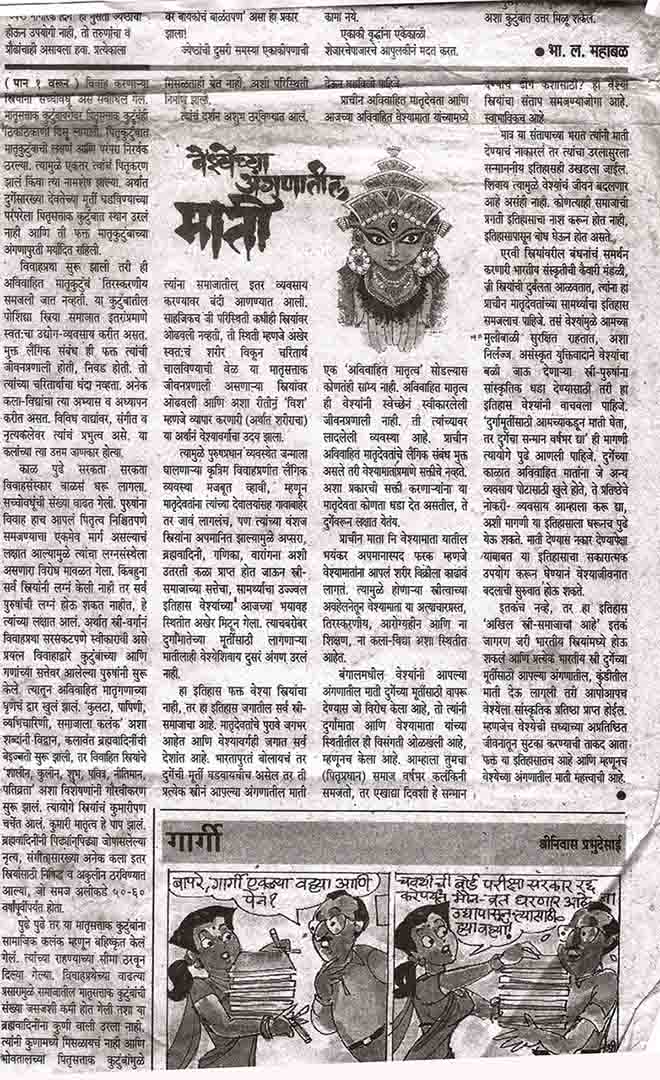 होऊन उपयोगी नाही, तो तरुणांचा व
प्रौढांचाही असायला हवा. प्रत्येकाला
वर बायकांचं बाळंतपण' असा हा प्रकार
झाला!
ज्येष्ठांची दुसरी समस्या एकाकीपणाची
कामा नये.
एकाकी वृद्धांना एकेकाळी
शेजारचेपाजारचे आपुलकीनं मदत करत.
अशा कुटुंबात उत्तर मिळू शकेल.
● भा. ल. महाबळ
वेश्येच्या
अंगणातील
माती
( पान १ वरून ) विवाह करणाऱ्या
स्त्रियांना सच्च्यावधू असं संबोधलं गेलं.
मातृसत्ताक कुटुंबांबरोबर पितृसत्ताक कुटुंबंही
ठिकठिकाणी दिसू लागली. पितृकुटुंबात
मातृकुटुंबाची लक्षणं आणि परंपरा निरर्थक
ठरल्या. त्यामुळे एकतर त्यांचं पितृकरण
झालं किंवा त्या नामशेष झाल्या. अर्थात
दुर्गासारख्या देवतेच्या मूर्ती घडविण्याच्या
परंपरेला पितृसत्ताक कुटुंबात स्थान उरलं
नाही आणि ती फक्त मातृकुटुंबाच्या
अंगणापुरती मर्यादित राहिली.
विवाहप्रथा सुरू झाली तरी ही
अविवाहित मातृकुटुंबं तिरस्करणीय
समजली जात नव्हती. या कुटुंबातील
पोशिंद्या स्त्रिया समाजात इतरांप्रमाणे
स्वतःचा उद्योग-व्यवसाय करीत असत.
मुक्त लैंगिक संबंध ही फक्त त्यांची
जीवनप्रणाली होती, निवड होती. तो
त्यांच्या चरितार्थाचा धंदा नव्हता. अनेक
कला-विद्यांचा त्या अभ्यास व अध्यापन
करीत असत. विविध वाद्यांवर, संगीत व
नृत्यकलेवर त्यांचं प्रभुत्व असे. या
कलांच्या त्या उत्तम जाणकार होत्या.
काळ पुढे सरकता सरकता
विवाहसंस्कार बाळसं धरू लागला.
सच्च्योवधूंची संख्या वाढत गेली. पुरुषांना
विवाह हाच आपलं पितृत्व निश्चितपणे
समजण्याचा एकमेव मार्ग असल्याचं
लक्षात आल्यामुळे त्यांचा लग्नसंस्थेला
असणारा विरोध मावळत गेला. किंबहुना
सर्व स्त्रियांनी लग्नं केली नाही तर सर्व
पुरुषांची लग्नं होऊ शकत नाहीत, हे
त्यांच्या लक्षात आलं. अर्थात स्त्री-वर्गानं
विवाहप्रथा सरसकटपणे स्वीकारावी असे
प्रयत्न विवाहाद्वारे कुटुंबांच्या आणि
गणांच्या सत्तेवर आलेल्या पुरुषांनी सुरू
केले. त्यातून अविवाहित मातृगणाच्या
घृणेचं द्वार खुलं झालं. 'कुलटा, पापिणी,
व्यभिचारिणी, समाजाला कलंक' अशा
शब्दांनी विद्वान, कलावंत ब्रह्मवादिनींची
बेइज्जती सुरू झाली, तर विवाहित स्त्रियांचे
'शालीन, कुलीन, शुभ, पवित्र, नीतिमान,
पतिव्रता' अशा विशेषणांनी गौरवीकरण
सुरू झालं. त्यायोगे स्त्रियांचं कुमारीपण
चर्चेत आलं. कुमारी मातृत्व हे पाप झालं.
ब्रह्मवादिनींनी पिढ्यान्‌पिढ्या जोपासलेल्या
नृत्य, संगीतासारख्या अनेक कला इतर
स्त्रियांसाठी निषिद्ध व अकुलीन ठरविण्यात
आल्या, जो समज अलीकडे ५०-६०
वर्षांपूर्वीपर्यंत होता.
पुढे पुढे तर या मातृसत्ताक कुटुंबांना
सामाजिक कलंक म्हणून बहिष्कृत केलं
गेलं. त्यांच्या राहण्याच्या सीमा ठरवून
दिल्या गेल्या. विवाहप्रथेच्या वाढत्या
प्रसारामुळे समाजातील मातृसत्ताक कुटुंबांची
संख्या जसजशी कमी होत गेली तशा या
ब्रह्मवादिनींना कुणी वाली उरला नाही.
त्यांनी कुणामध्ये मिसळायचं नाही आणि
भोवतालच्या पितृसत्ताक कुटुंबांमुळे
मिसळताही येत नाही, अशी परिस्थिती
निर्माण झाली.
त्यांचं दर्शन अशुभ ठरविण्यात आलं.
त्यांना समाजातील इतर व्यवसाय
करण्यावर बंदी आणण्यात आली.
साहजिकच जी परिस्थिती कधीही स्त्रियांवर
ओढवली नव्हती, ती स्थिती म्हणजे अखेर
स्वतःचं शरीर विकून चरितार्थ
चालविण्याची वेळ या मातृसत्ताक
जीवनप्रणाली असणाऱ्या स्त्रियांवर
ओढवली आणि अशा रीतीनं 'विश'
म्हणजे व्यापार करणारी (अर्थात शरीराचा)
या अर्थानं वेश्यावर्गाचा उदय झाला.
त्यामुळे पुरुषप्रधान व्यवस्थेत जन्माला
घालणाऱ्या कृत्रिम विवाहप्रणीत लैंगिक
व्यवस्था मजबूत व्हावी, म्हणून
मातृदेवतांना त्यांच्या देवालयांसह गावाबाहेर
तर जावं लागलंच, पण त्यांच्या वंशज
स्त्रियांना अपमानित झाल्यामुळे अप्सरा,
ब्रह्मवादिनी, गणिका, वारांगना अशी
उतरती कळा प्राप्त होत जाऊन स्त्री-
समाजाच्या सत्तेचा, सामर्थ्याचा उज्ज्वल
इतिहास वेश्यांच्या आजच्या भयावह
स्थितीत अखेर मिटून गेला. त्याचबरोबर
दुर्गामातेच्या मूर्तींसाठी लागणाऱ्या
मातीलाही वेश्येशिवाय दुसरं अंगण उरलं
नाही.
हा इतिहास फक्त वेश्या स्त्रियांचा
नाही, तर हा इतिहास जगातील सर्व स्त्री-
समाजाचा आहे. मातृदेवतांचे पुरावे जगभर
आहेत आणि वेश्यावर्गही जगात सर्व
देशांत आहे. भारतापुरतं बोलायचं तर
दुर्गेची मूर्ती घडवायचीच असेल तर ती
प्रत्येक स्त्रीनं आपल्या अंगणातील माती
देऊन घडविली पाहिजे.
प्राचीन अविवाहित मातृदेवता आणि
आजच्या अविवाहित वेश्यामाता यांच्यामध्ये
एक 'अविवाहित मातृत्व' सोडल्यास
कोणतंही साम्य नाही. अविवाहित मातृत्व
ही वेश्यांनी स्वेच्छेनं स्वीकारलेली
जीवनप्रणाली नाही. ती त्यांच्यावर
लादलेली व्यवस्था आहे. प्राचीन
अविवाहित मातृदेवतांचे लैंगिक संबंध मुक्त
असले तरी वेश्यामातांप्रमाणे सक्तीचे नव्हते.
अशा प्रकारची सक्ती करणाऱ्यांना या
मातृदेवता कोणता धडा देत असतील, ते
दुर्गेवरून लक्षात येतंय.
प्राचीन माता नि वेश्यामाता यातील
भयंकर अपमानास्पद फरक म्हणजे
वेश्यामातांना आपलं शरीर विक्रीला काढावं
लागतं. त्यामुळे होणाऱ्या स्त्रीत्वाच्या
अवहेलनेतून वेश्यामाता या अत्याचारग्रस्त,
तिरस्करणीय, आरोग्यहीन आणि ना
शिक्षण, ना कला-विद्या अशा स्थितीत
आहेत.
बंगालमधील वेश्यांनी आपल्या
अंगणातील माती दुर्गेच्या मूर्तीसाठी वापरू
देण्यास जो विरोध केला आहे, तो त्यांनी
दुर्गामाता आणि वेश्यामाता यांच्या
स्थितीतील ही विसंगती ओळखली आहे,
म्हणूनच केला आहे. आम्हाला तुमचा
(पितृप्रधान) समाज वर्षभर कलंकिनी
समजतो, तर एखाद्या दिवशी हे सन्मान
देण्याचं ढोंग कशासाठी? हा वेश्या
स्त्रियांचा संताप समजण्याजोगा आहे.
स्वाभाविकच आहे.
मात्र या संतापाच्या भरात त्यांनी माती
देण्याचं नाकारलं तर त्यांचा उरलासुरला
सन्माननीय इतिहासही उखडला जाईल.
शिवाय त्यामुळे वेश्यांचं जीवन बदलणार
आहे असंही नाही. कोणत्याही समाजाची
प्रगती इतिहासाचा नाश करून होत नाही,
इतिहासापासून बोध घेऊन होत असते.
एरवी स्त्रियांवरील बंधनांचं समर्थन
करणारी भारतीय संस्कृतीची कैवारी मंडळी,
जी स्त्रियांची दुर्बलता आळवतात, त्यांना हा
प्राचीन मातृदेवतांच्या सामर्थ्याचा इतिहास
समजलाच पाहिजे. तसं वेश्यांमुळे आमच्या
मुलीबाळी सुरक्षित राहतात, अशा
निर्लज्ज, असंस्कृत युक्तिवादानं वेश्यांचा
बळी जाऊ देणाऱ्या स्त्री-पुरुषांना
सांस्कृतिक धडा देण्यासाठी तरी हा
इतिहास वेश्यांनी वाचवला पाहिजे.
'दुर्गामूर्तीसाठी आमच्याकडून माती घेता,
तर दुर्गेचा सन्मान वर्षभर द्या' ही मागणी
त्यायोगे पुढे आणली पाहिजे. दुर्गेच्या
काळात अविवाहित मातांना जे अन्य
व्यवसाय पोटासाठी खुले होते, ते प्रतिष्ठेचे
नोकरी- व्यवसाय आम्हाला करू द्या,
अशी मागणी या इतिहासाला धरूनच पुढे
येऊ शकते. माती देण्यास नकार देण्यापेक्षा
याबाबत या इतिहासाचा सकारात्मक
उपयोग करून घेण्यानं वेश्याजीवनात
बदलाची सुरुवात होऊ शकते.
इतकंच नव्हे, तर हा इतिहास
'अखिल स्त्री-समाजाचा आहे' इतकं
जागरण जरी भारतीय स्त्रियांमध्ये होऊ
शकलं आणि प्रत्येक भारतीय स्त्री दुर्गेच्या
मूर्तीसाठी आपल्या अंगणातील, कुंडीतील
माती देऊ लागली तरी आपोआपच
वेश्येला सांस्कृतिक प्रतिष्ठा प्राप्त होईल.
म्हणजेच वेश्येची सध्याच्या अप्रतिष्ठित
जीवनातून सुटका करण्याची ताकद आता
फक्त या इतिहासातच आहे आणि म्हणूनच
वेश्येच्या अंगणातील माती महत्त्वाची आहे.
●
गार्गी
श्रीनिवास प्रभुदेसाई
बापरे, गार्गी एवढ्या वह्या आणि
पेनं?
चवथीची बोर्ड परीक्षा सरकार रद्द
करेपर्यंत मौन-व्रत धरणार आहे
उद्यापासून त्यासाठी
ह्या वह्या!